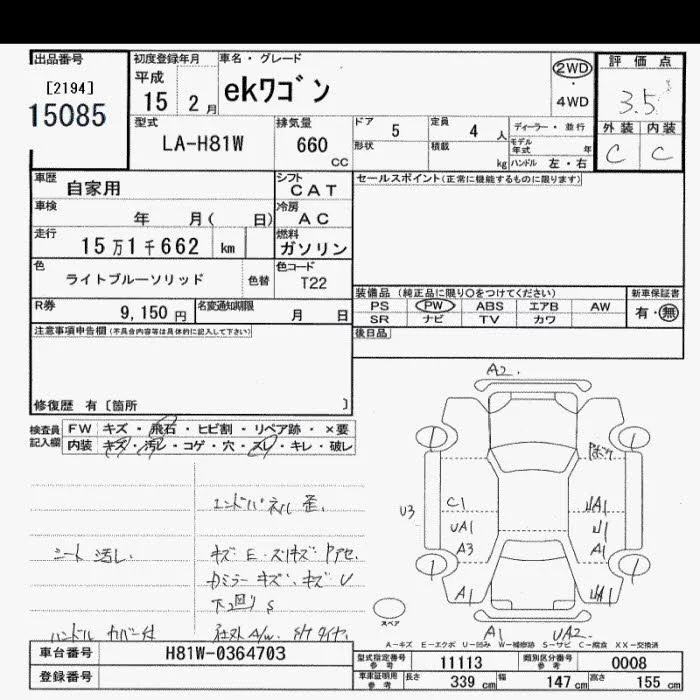 出品番号
[2194]
15085
初度登録年月
平成
15 2 月
車名・グレード
ekワゴン
2WD
・
4WD
評価点
3.5
外装 内装
C C
型式
LA-H81W
排気量
660
CC
ドア 5
形状
定員 4 人
積載 kg
ディーラー・並行
モデル年式 年
ハンドル 左・右
車歴
自家用
シフト
CAT
セールスポイント(正常に機能するものに限ります)
車検
年 月( 日)
冷房
AC
走行
15万1千662 km
燃料
ガソリン
色
ライトブルーソリッド
色替
色コード
T22
装備品 (純正品に限り○をつけてください)
PS PW ABS エアB AW
SR ナビ TV カワ
新車保証書
有・無
R券
9,150 円
名変通知期限
月 日
後日品
注意事項申告欄(不具合内容等は具体的に記入して下さい)
修復歴 有〔箇所 〕
検査員記入欄
FW キズ・飛石・ヒビ割・リペア跡・×要
内装 キズ・汚レ・コゲ・穴・スレ・キレ・破レ
エンドパネル 歪.
シート 汚し.
キズ E・スリキズ・
カミラー キズ・キズ U
下回り S
ハンドル カバー付
A2
U3
C1
UA1
A3
A1
A1
A1
UA2
スペア
A-キズ E-エクボ U-凹み W-補修跡 S-サビ C-腐食 XX-交換済
車台番号
H81W-0364703
登録番号
型式指定番号参考 11113
類別区分番号参考 0008
車車証明用参考 長さ 339 cm 幅 147 cm 高さ 155 cm